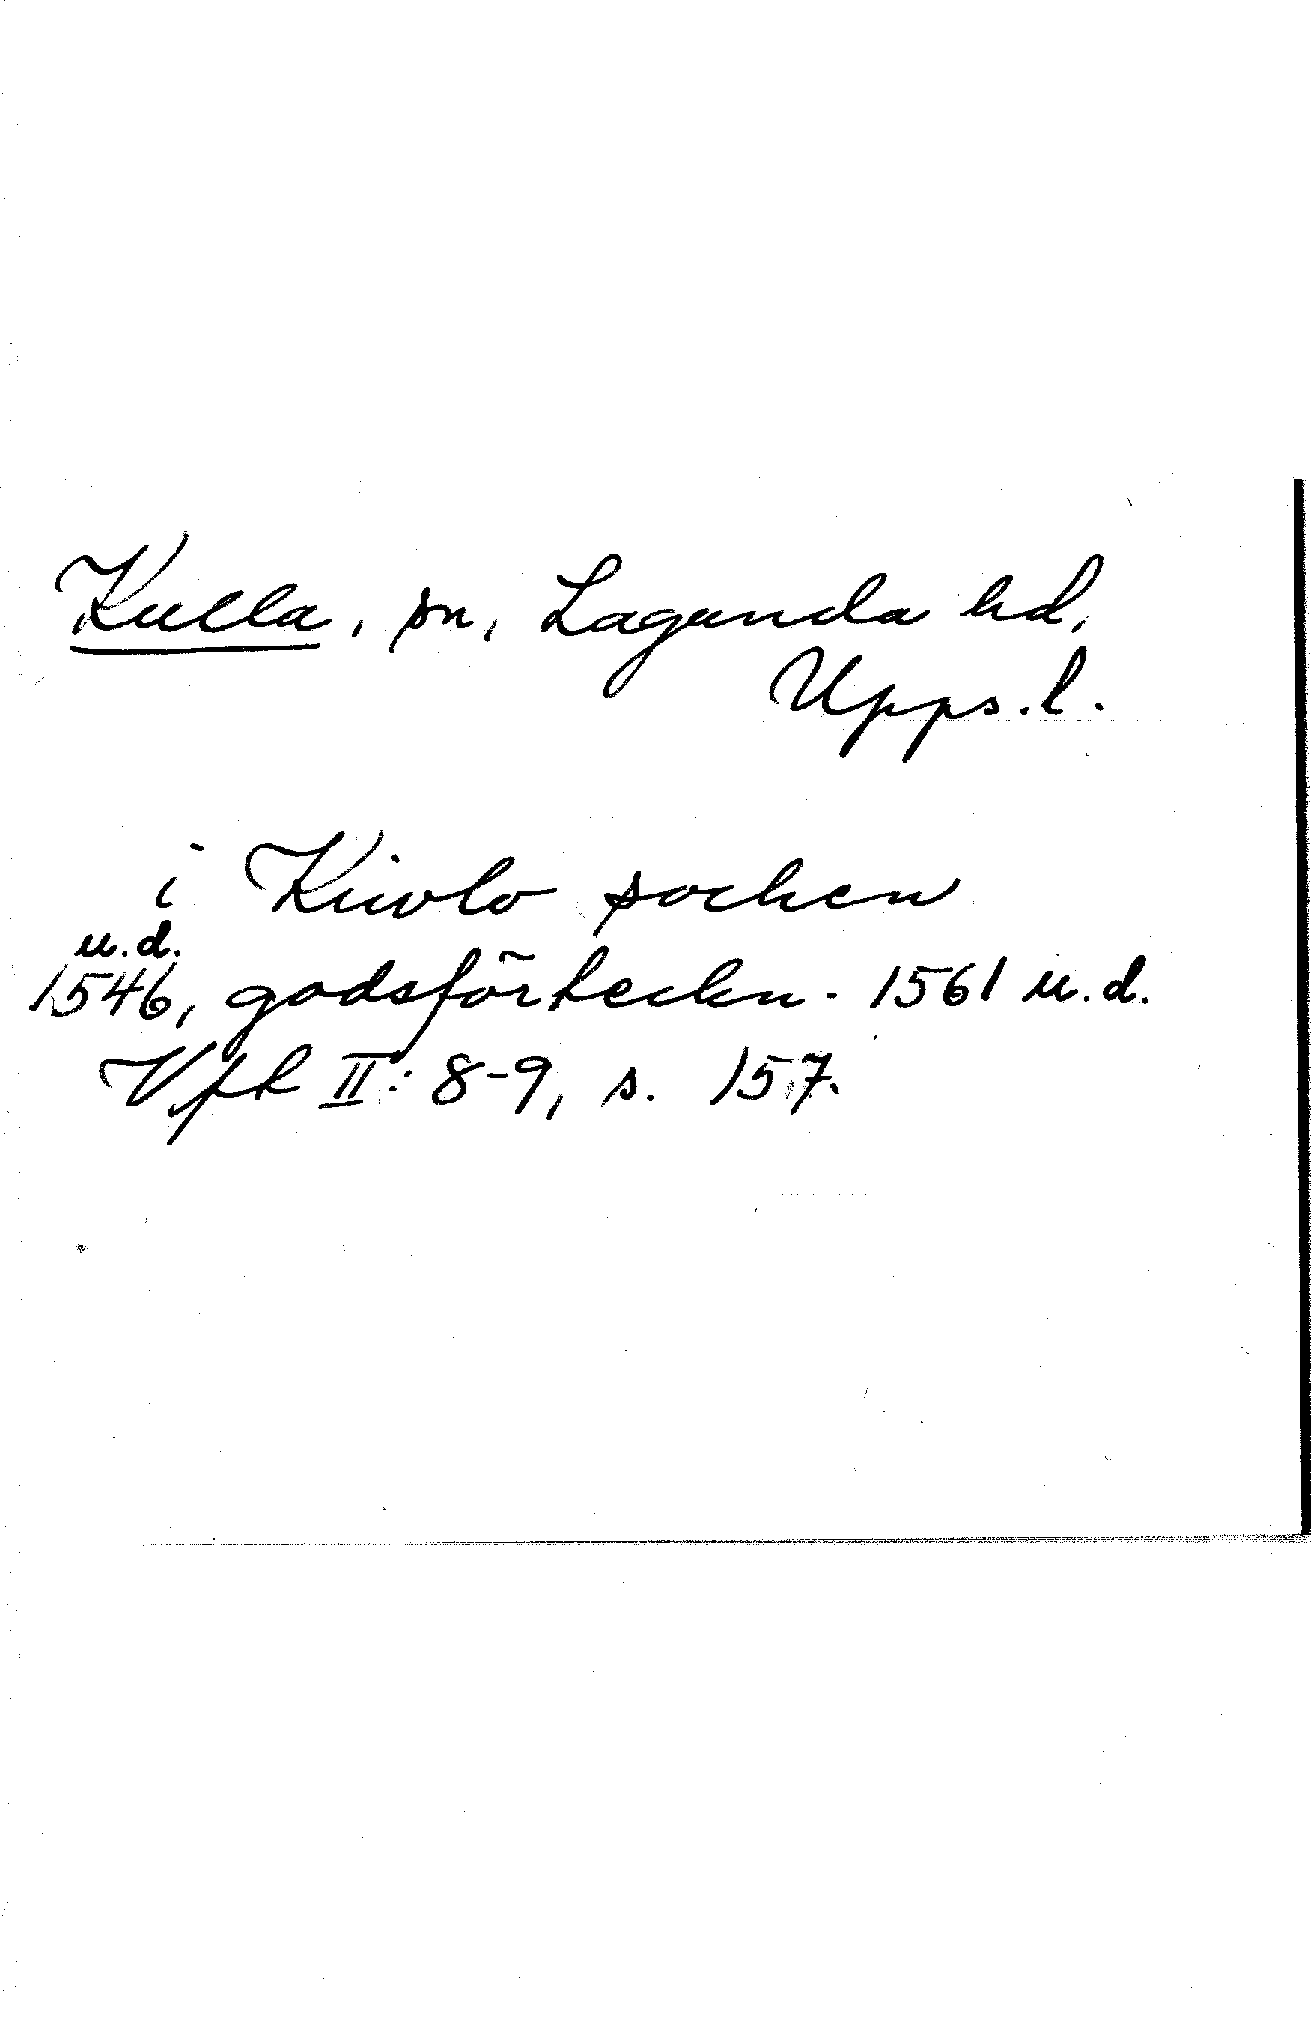 Kulla, sn, Lagunda hd,
Upps.l.
i Kiwlo sochen
u.d.
1546, godsförteckn. 1561 u.d.
Vfk II: 8-9, s. 157.